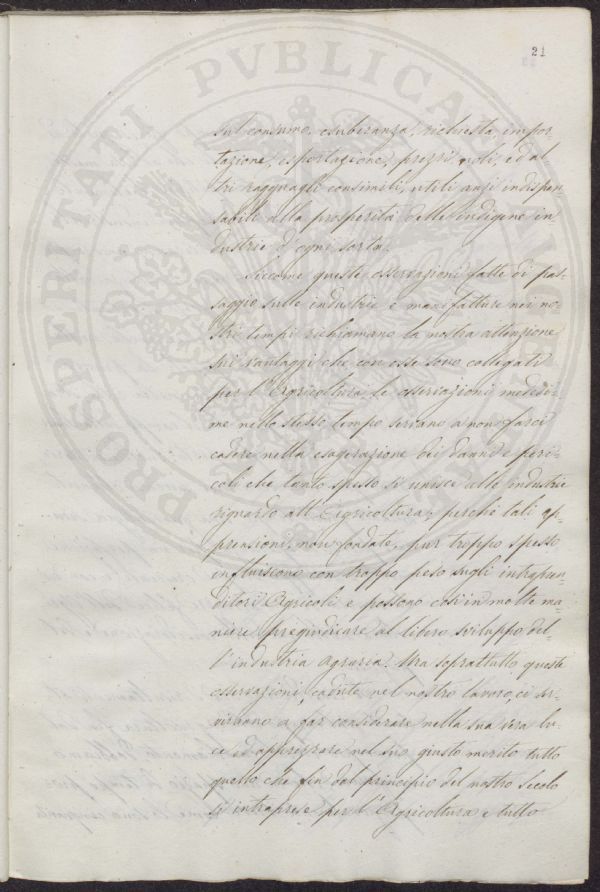 21
sul consumo, esuberanza, richiesta, impor-
tazione, esportazione, prezzi, noli, ed al-
tri ragguagli consimili, utili anzi indispen-
sabili alla prosperità delle indigene in-
dustrie d'ogni sorta.
Siccome queste osservazioni fatte di pas-
saggio sulle industrie e manifatture nei no-
stri tempi richiamano la nostra attenzione
sui vantaggi che con esse sono collegati
per l'Agricoltura le osservazioni medesi-
me nello stesso tempo servano a non farci
cadere nella esagerazione dei danni e peri-
coli che tanto spesso si unisce alle industrie
riguardo all'Agricoltura; perchè tali ap-
prensioni, non fondate, pur troppo spesso
influiscono con troppo peso sugli intrapren-
ditori Agricoli e possono così in molte ma-
niere pregiudicare al libero sviluppo del-
l'industria agraria. Ma soprattutto queste
osservazioni, cadute nel nostro lavoro, ci ser-
viranno a far considerare nella sua vera lu-
ce ed apprezzare nel suo giusto merito tutto
quello che fin dal principio del nostro Secolo
si intraprese per l'Agricoltura e tutto
PROSPERITATI PUBLICAE